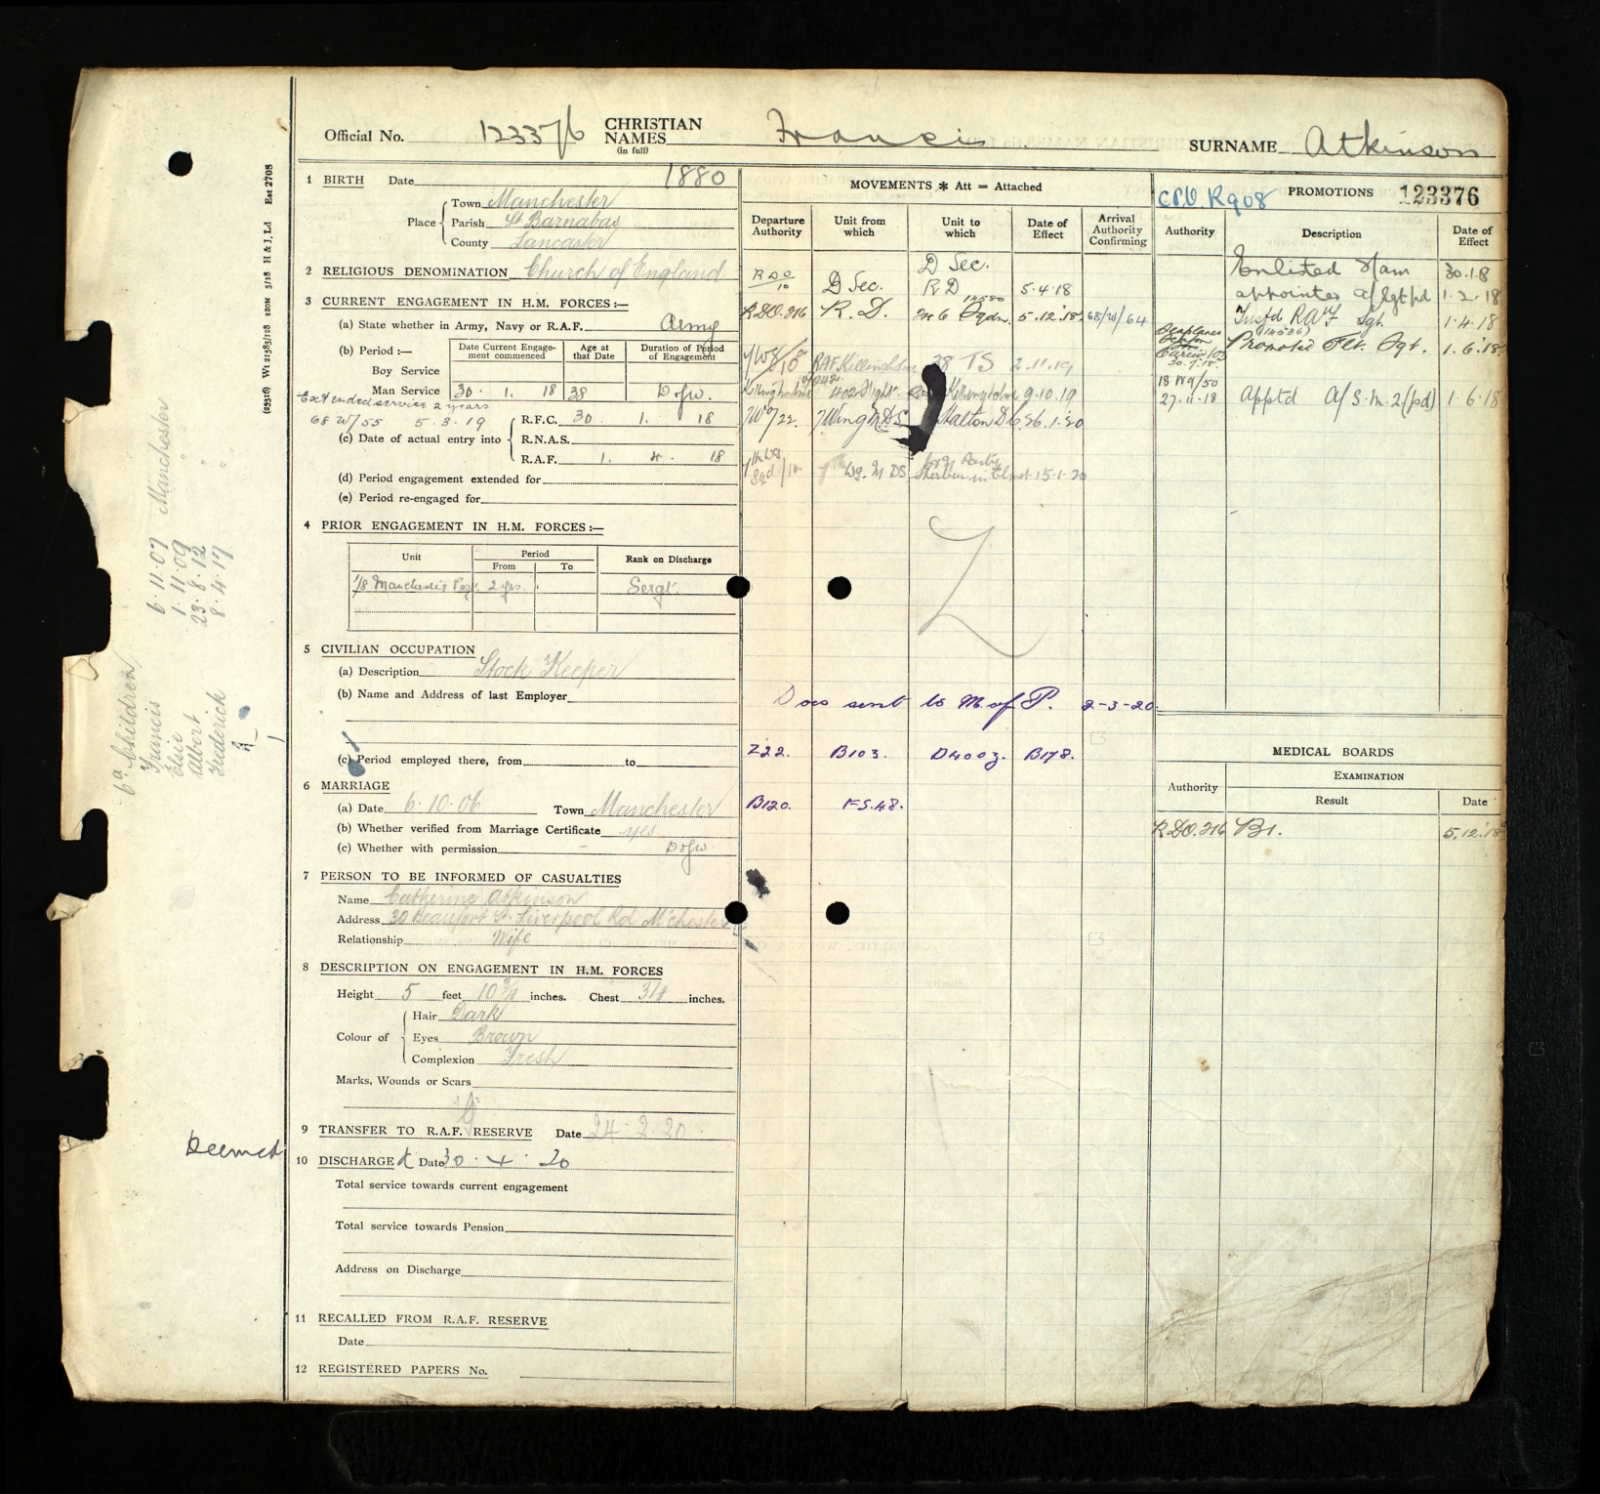 Official No. 123376 CHRISTIAN NAMES (in full) Francis SURNAME Atkinson
1 BIRTH Date 1880
Place Town Manchester
Parish St Barnabas
County Lancaster
2 RELIGIOUS DENOMINATION Church of England
3 CURRENT ENGAGEMENT IN H.M. FORCES:—
(a) State whether in Army, Navy or R.A.F. Army
(b) Period:— Date Current Engagement commenced Age at that Date Duration of Period of Engagement
Boy Service
Man Service 30. 1. 18 38 Dofw.
Extended service 2 years
68 W/55 5.3.19
(c) Date of actual entry into R.F.C. 30. 1. 18
R.N.A.S.
R.A.F. 1. 4. 18
(d) Period engagement extended for
(e) Period re-engaged for
4 PRIOR ENGAGEMENT IN H.M. FORCES:—
Unit Period From To Rank on Discharge
1/8 Manchester Regt 2 yrs. Sergt.
5 CIVILIAN OCCUPATION
(a) Description Stock Keeper
(b) Name and Address of last Employer
(c) Period employed there, from to
6 MARRIAGE
(a) Date 6.10.06 Town Manchester
(b) Whether verified from Marriage Certificate yes
(c) Whether with permission – Dofw.
7 PERSON TO BE INFORMED OF CASUALTIES
Name Catherine Atkinson
Address 30 Beaufort St. Liverpool Rd M'chester
Relationship Wife
8 DESCRIPTION ON ENGAGEMENT IN H.M. FORCES
Height 5 feet 10 3/4 inches. Chest inches.
Colour of Hair Dark
Eyes Brown
Complexion Fresh
Marks, Wounds or Scars
9 TRANSFER TO R.A.F. RESERVE Date 24.2.20
Deemed
10 DISCHARGEd Date 30.4.20
Total service towards current engagement
Total service towards Pension
Address on Discharge
11 RECALLED FROM R.A.F. RESERVE
Date
12 REGISTERED PAPERS No.
MOVEMENTS * Att = Attached
Departure Authority Unit from which Unit to which Date of Effect Arrival Authority Confirming
D Sec.
D Sec. R D 5.4.18
RDO.216 R. D. 5.12.18 68/W/64
38 TS 2.11.19
9.10.19
7W/22. Halton 26.1.20
15.1.20
Docs sent to M of P. 2-3-20
Z22. B103. D400z. B178.
B120. FS.48.
PROMOTIONS 123376
Authority Description Date of Effect
Enlisted 30.1.8
appointed A/Sgt pd 1.2.18
Tusfd RAF Sgt. 1.4.18
Promoted Flt. Sgt. 1.6.18
18 W9/50
27.11.18 Apptd A/S.M.2(pd) 1.6.18
MEDICAL BOARDS
Authority EXAMINATION
Result Date
RDO.216 B1. 5.12.18
6a Children
Francis 6.11.07 Manchester
Elsie 1.11.09 "
Albert 23.8.12 "
Frederick 8.4.17 "